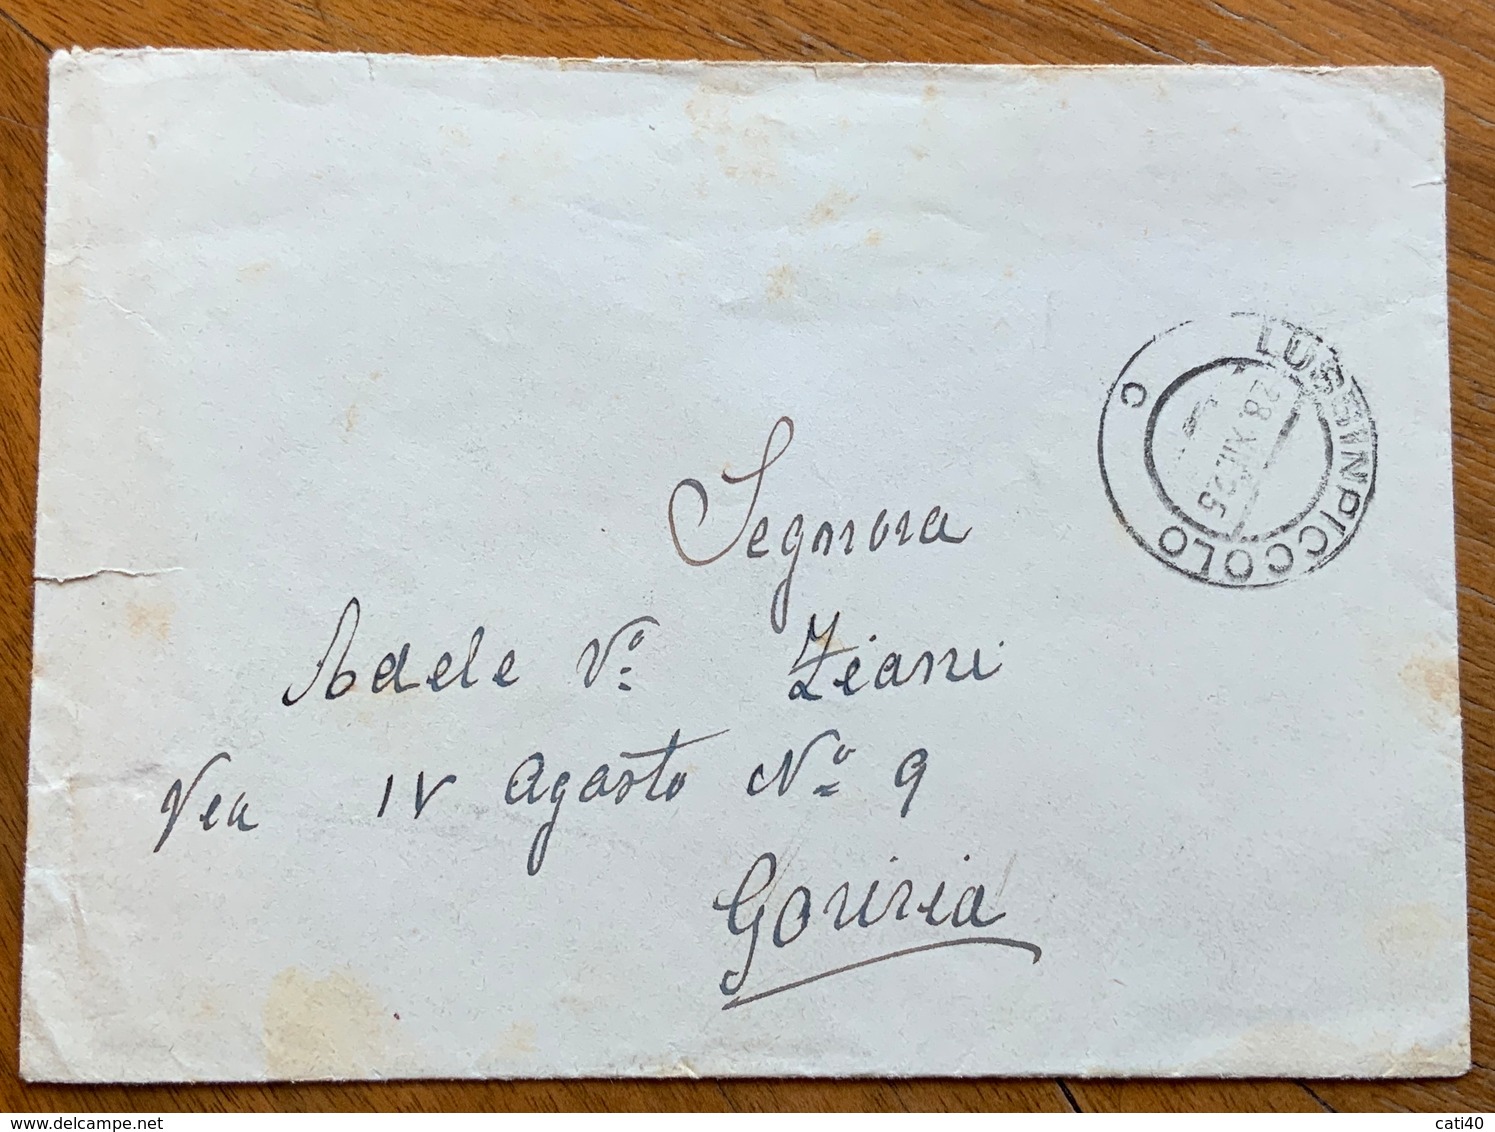 LUSSINPICCOLO
28.XII.25
C
Segnora
Adele Vᵒ. Ziani
Via IV Agosto Nᵒ 9
Gorizia
cati40
delcampe.net